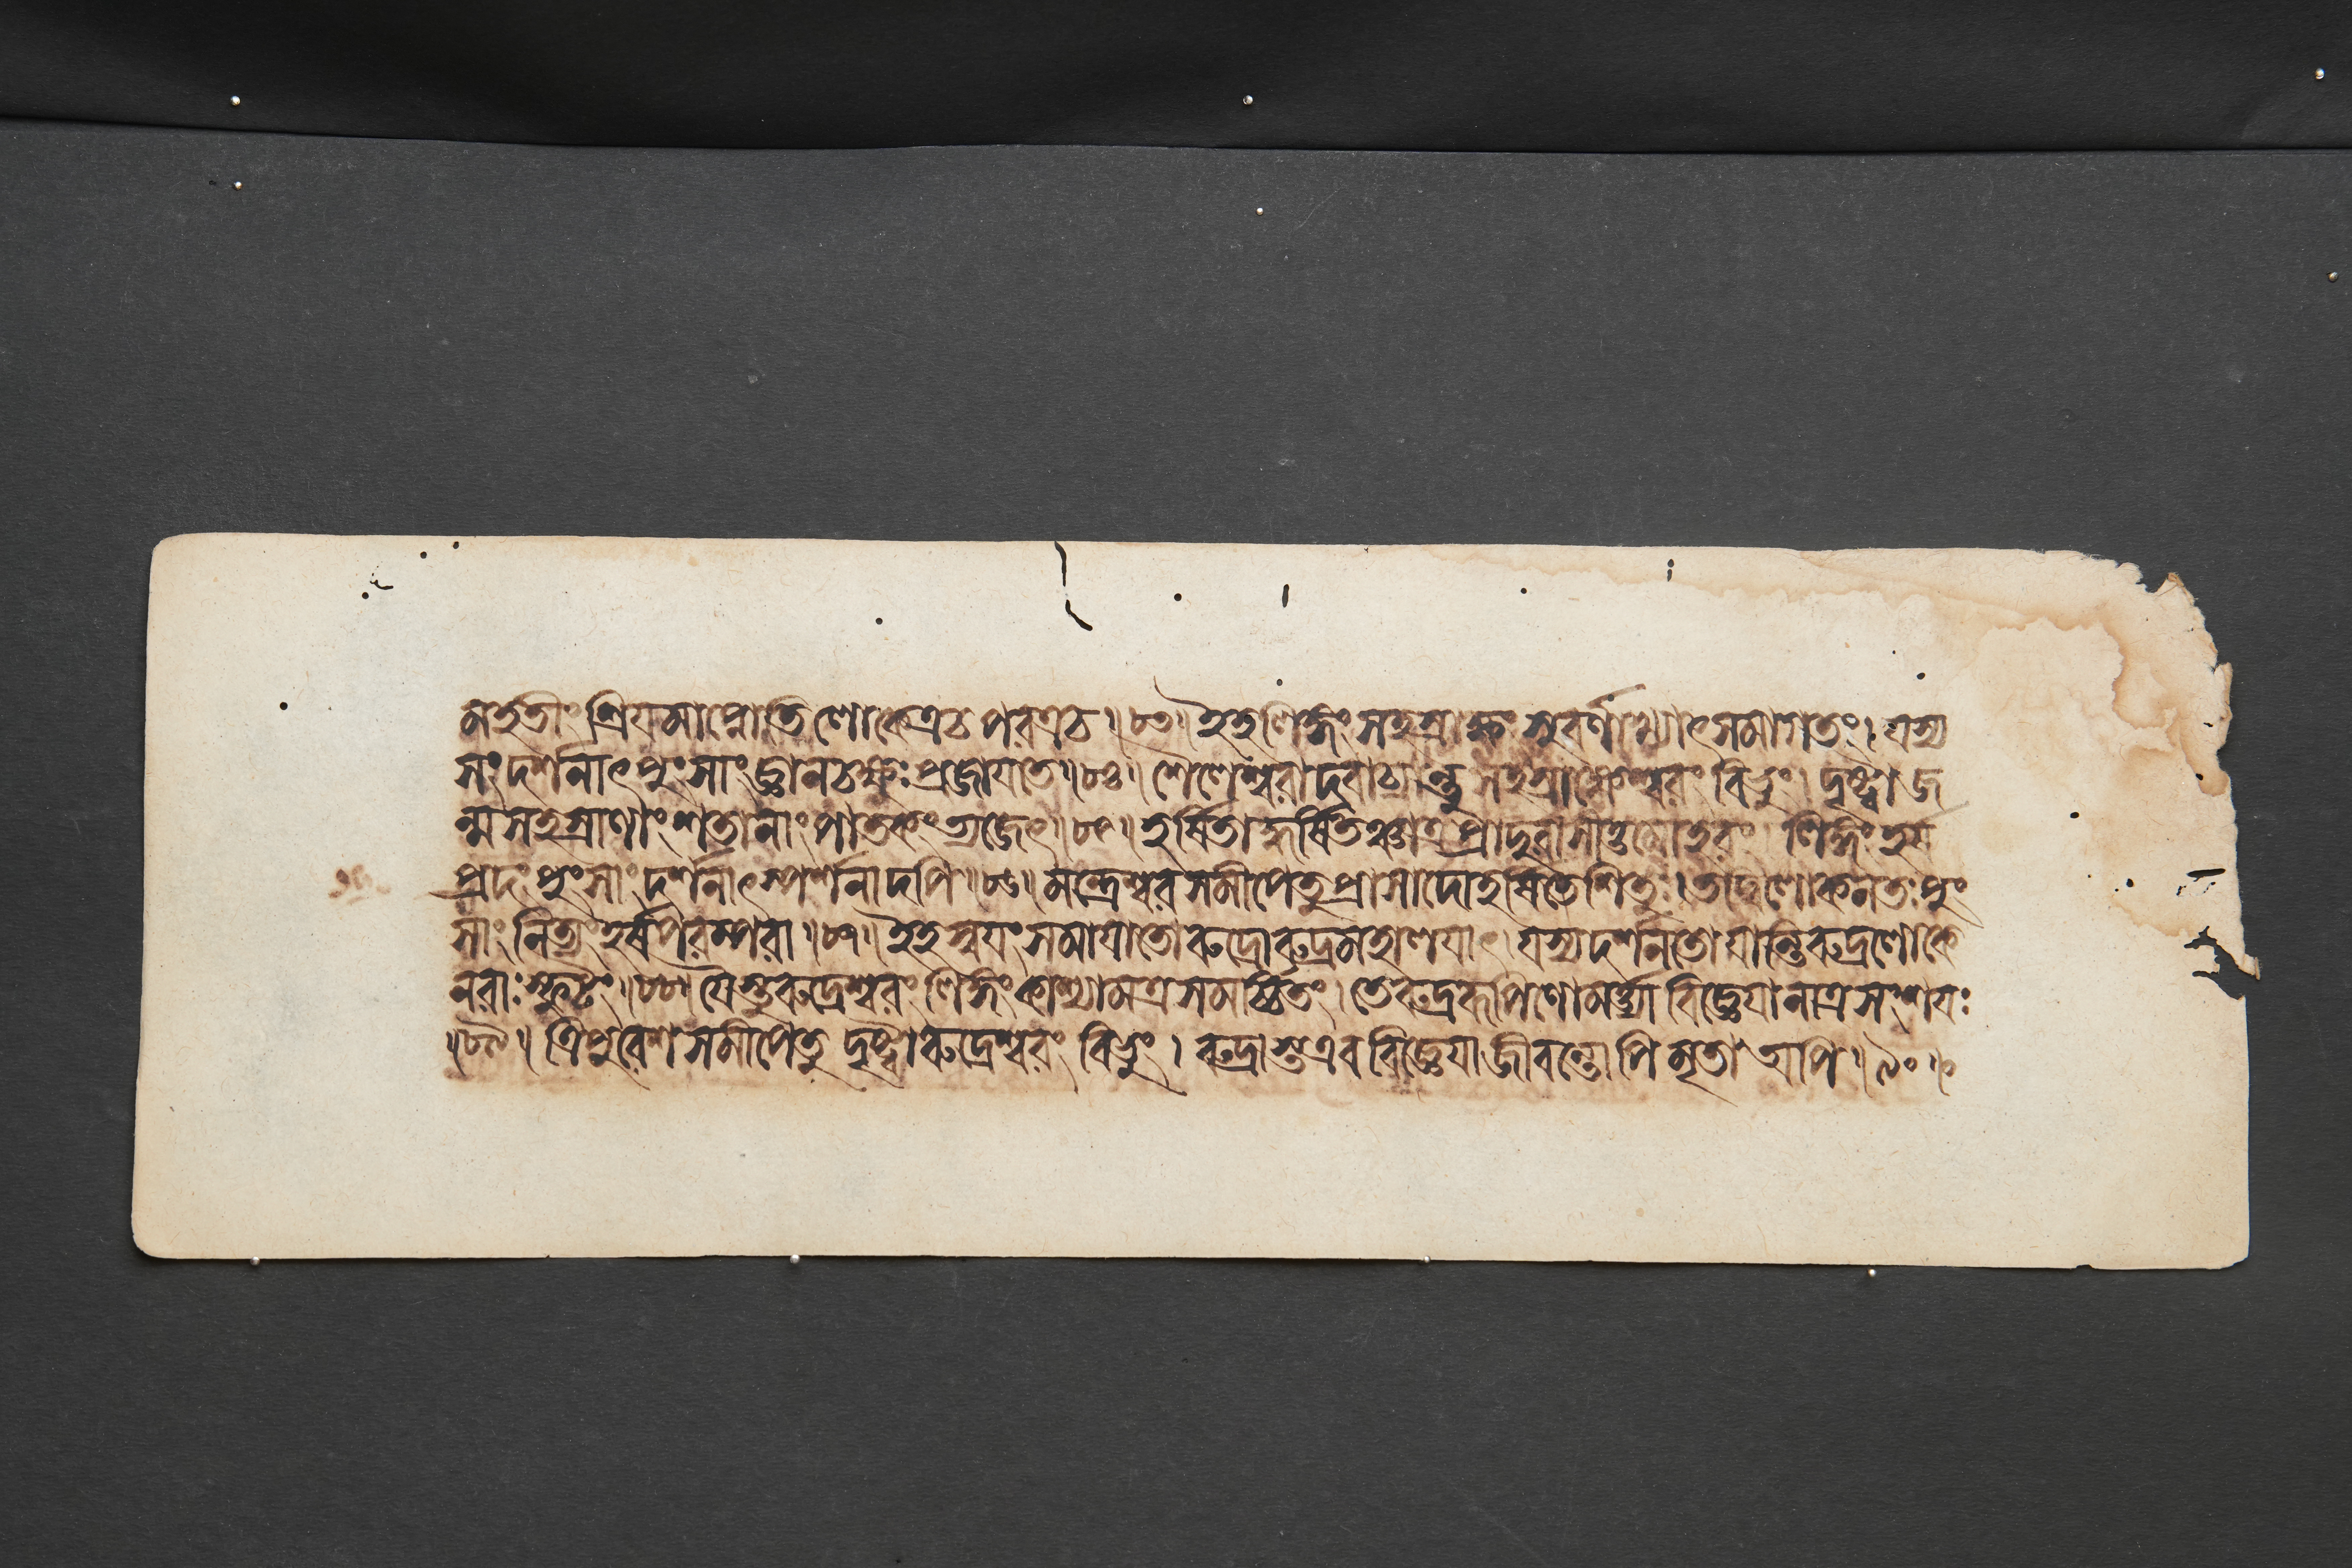 মহতীং শ্রিয়মাপ্নোতি লোকেত্রচ পরত্রচ॥৮৩॥ ইহলিঙ্গং সহস্রাক্ষং সুবর্ণাখ্যাৎসমাগতং। যস্য
সংদর্শনাৎপুংসাং জ্ঞানচক্ষুঃ প্রজায়তে॥৮৪॥ শৈলেশ্বরাদবাচ্যান্তু সহস্রাক্ষেশ্বরং বিভুং। দৃষ্ট্বা জ
ন্মসহস্রাণাং শতানাং পাতকং ত্যজেৎ॥৮৫॥ হর্ষিতাদ্ধর্ষিতঞ্চাত্র প্রাদুরাসীত্তমোহরং। লিঙ্গং হর্ষ
প্রদং পুংসাং দর্শনাৎস্পর্শনাদপি॥৮৬॥ মন্ত্রেশ্বরসমীপেতু প্রাসাদোহর্ষিতেশিতুঃ। তদ্বিলোকনতঃ পুং
সাং নিত্যং হর্ষপরম্পরা॥৮৭॥ ইহ স্বয়ং সমায়াতো রুদ্রোরুদ্রমহালয়াৎ। যস্যদর্শনতো যান্তি রুদ্রলোকে
নরাঃ স্ফুটং॥৮৮॥ যৈস্তুরুদ্রেশ্বরং লিঙ্গং কাশ্যামত্র সমর্চ্চিতং। তেরুদ্ররূপিণোমর্ত্ত্যা বিজ্ঞেয়া নাত্র সংশয়ঃ
॥৮৯॥ ত্রিপুরেশসমীপেতু দৃষ্ট্বা রুদ্রেশ্বরং বিভুং। রুদ্রাস্তএব বিজ্ঞেয়া জীবন্তোপি মৃতা অপি॥৯০॥